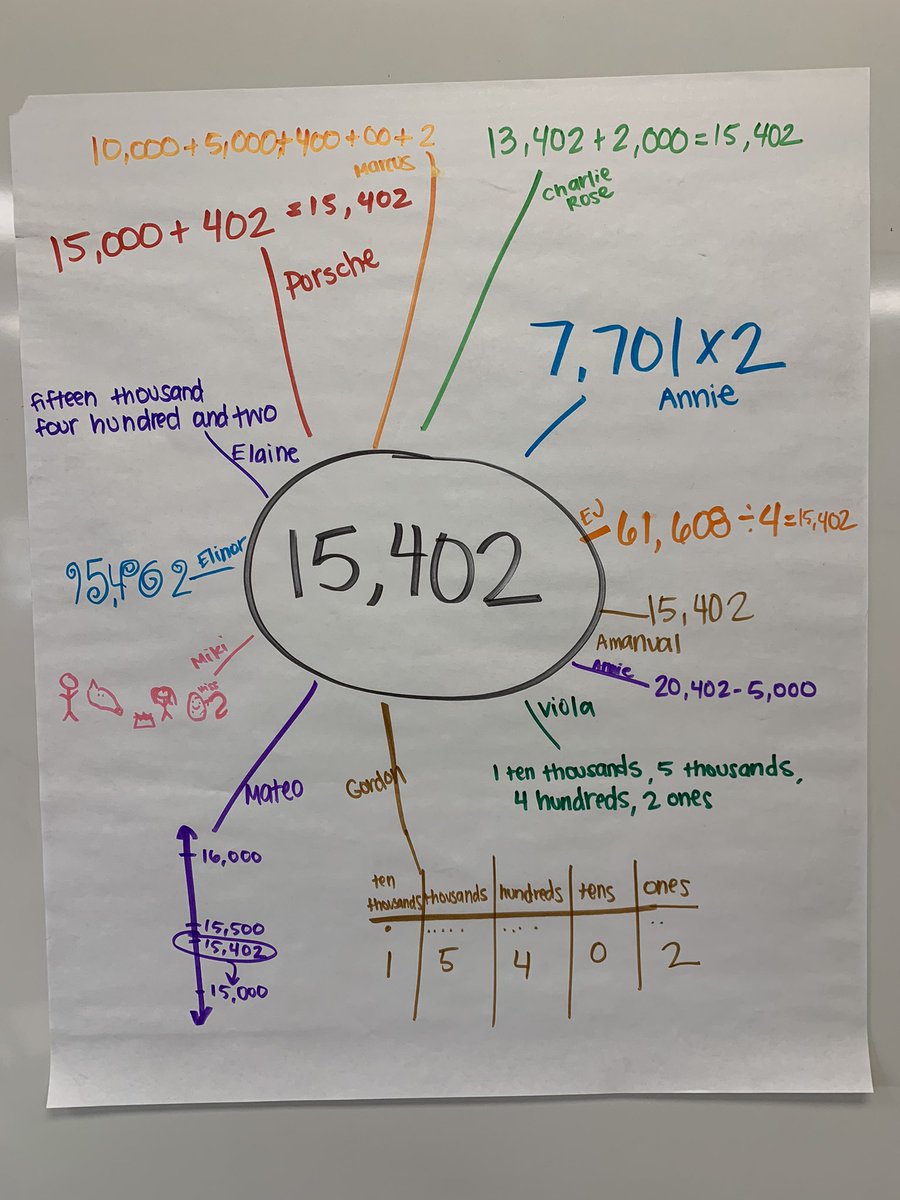 10,000+5,000+400+00+2
Marcus
13,402+2,000=15,402
Charlie
Rose
15,000+402=15,402
Porsche
7,701×2
Annie
fifteen thousand
four hundred and two
Elaine
EJ
61,608÷4=15,402
15,402
Elinor
15,402
15,402
Amanual
Miki
Annie
20,402-5,000
viola
1 ten thousands, 5 thousands,
4 hundreds, 2 ones
Mateo
16,000
15,500
15,402
15,000
Gordon
ten thousands thousands hundreds tens ones
1 5 4 0 2